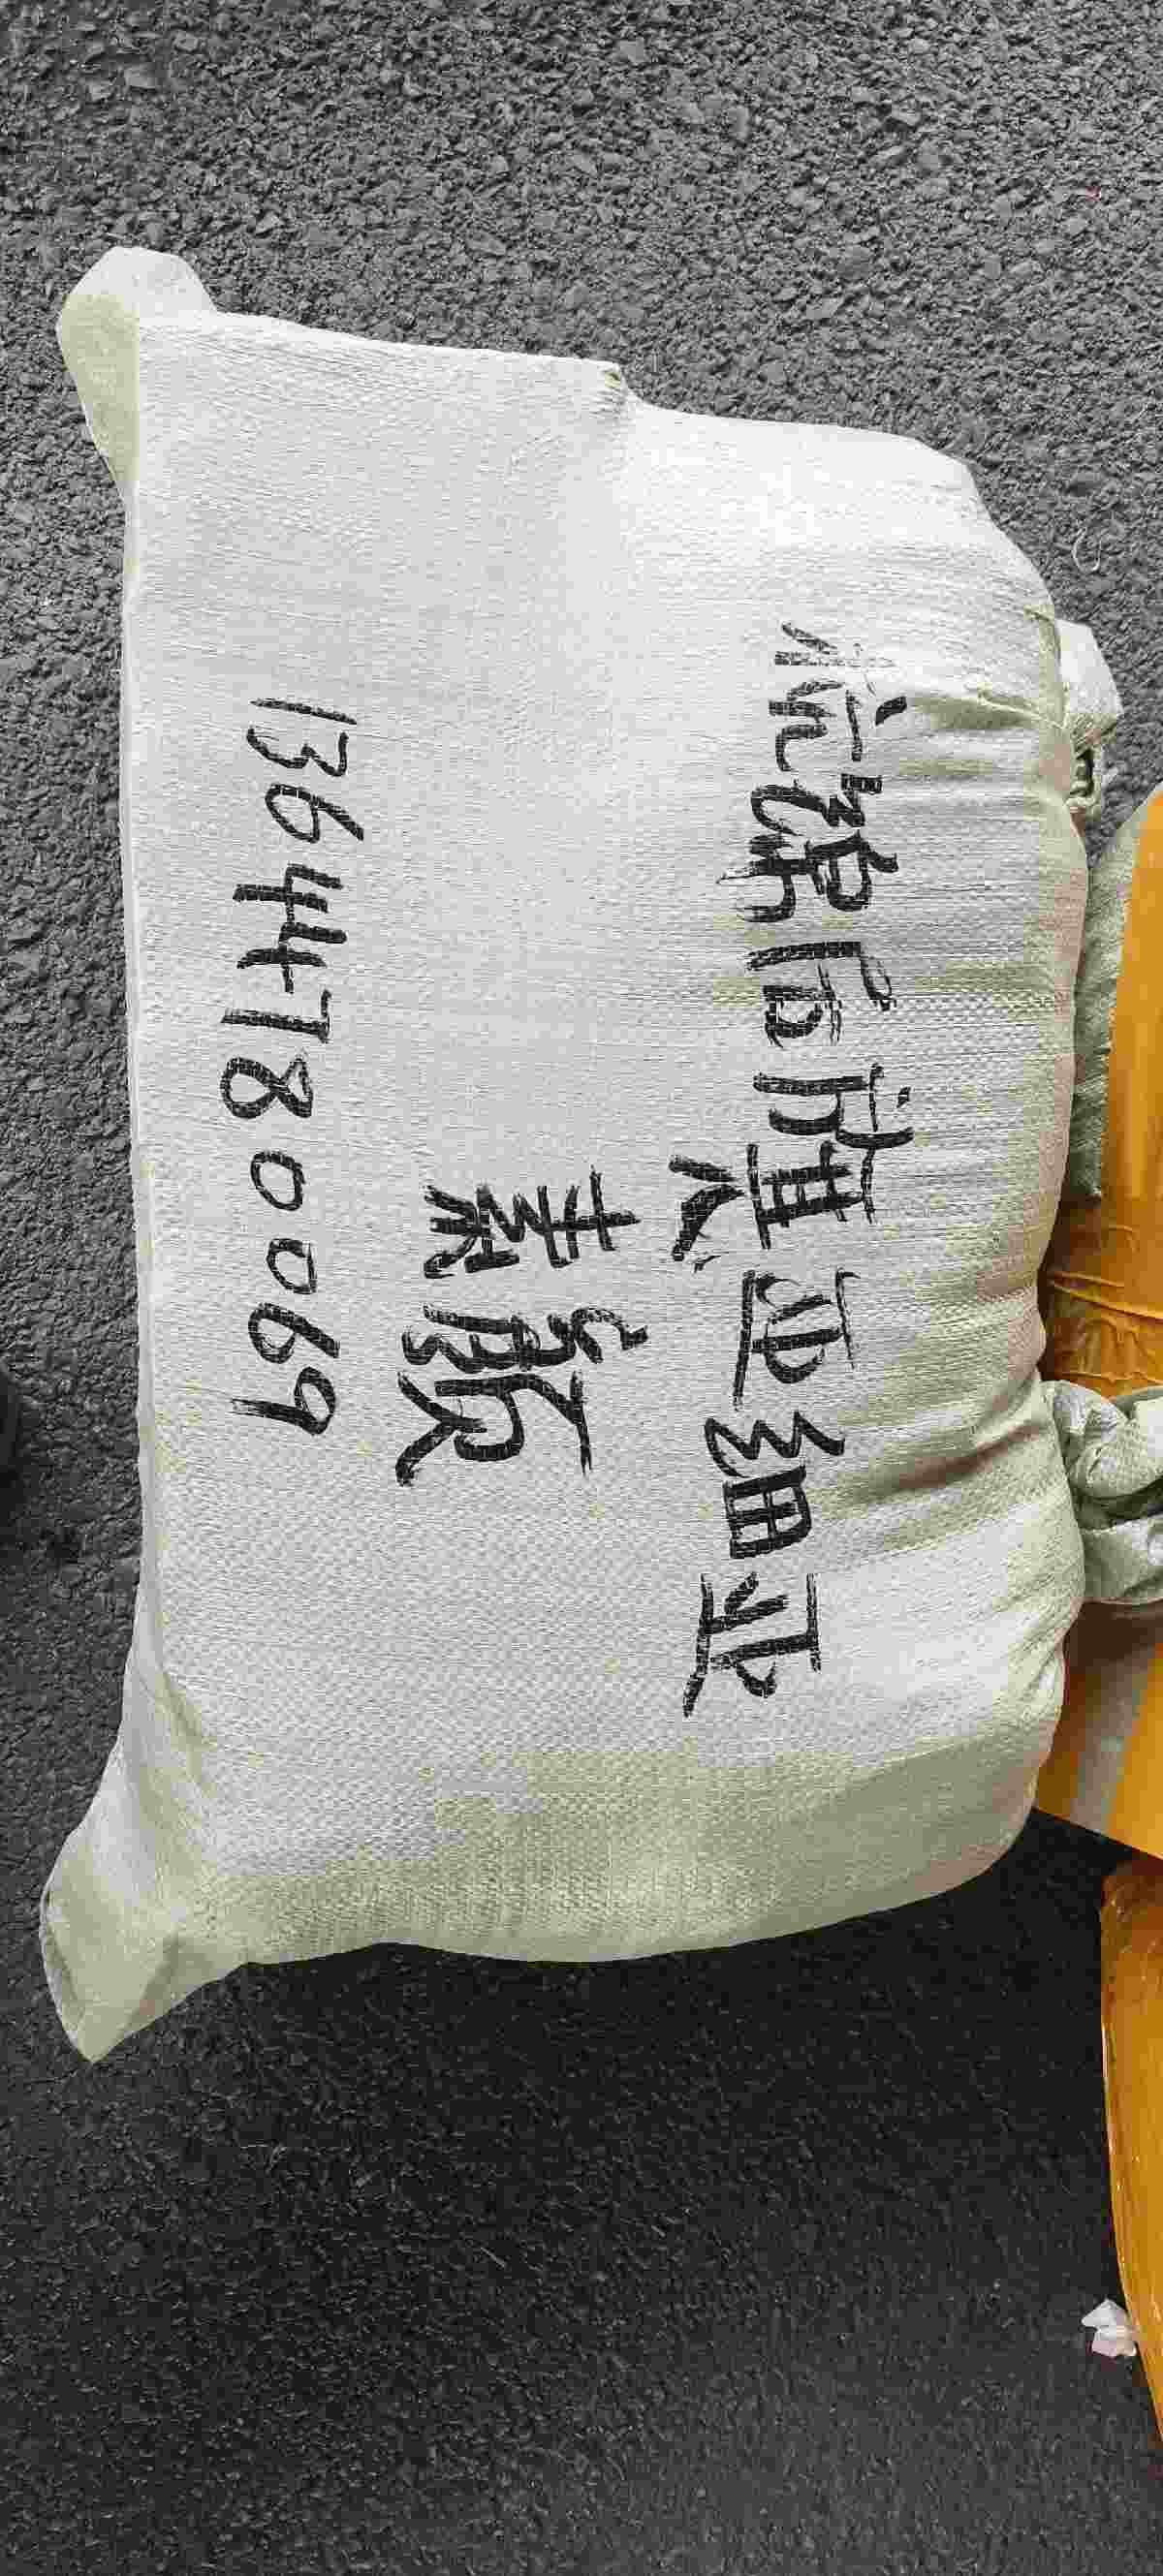 杭锦后旗亚细亚
素颜
13644780069